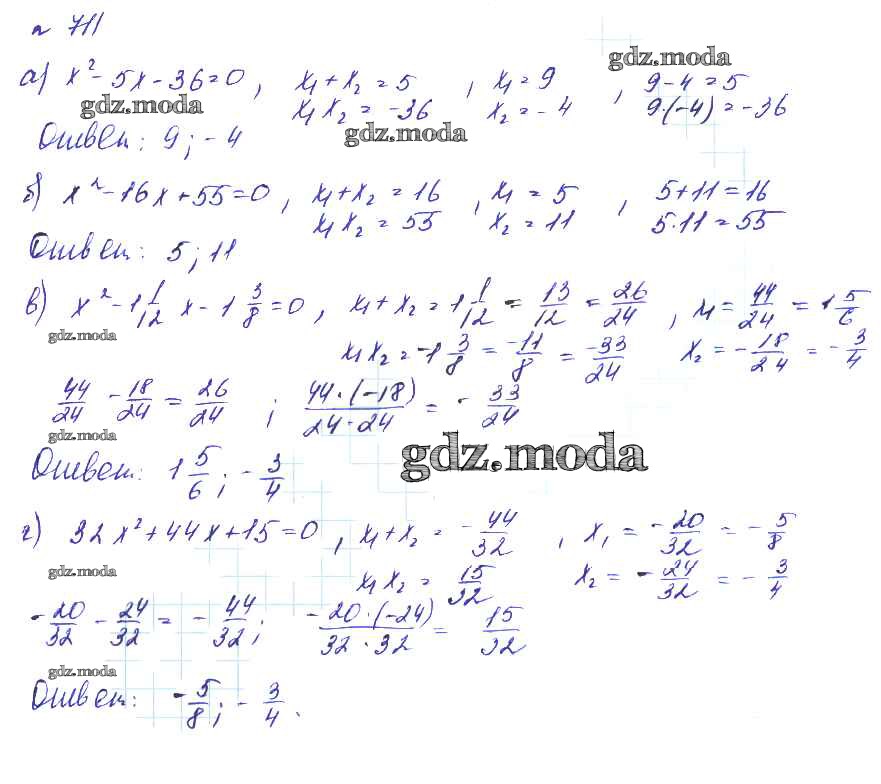 n 711
а) x² - 5x - 36 = 0, x₁ + x₂ = 5, x₁ = 9, 9 - 4 = 5
x₁x₂ = -36 x₂ = -4 9·(-4) = -36
gdz.moda
gdz.moda
gdz.moda
Ответ: 9; -4
б) x² - 16x + 55 = 0, x₁ + x₂ = 16, x₁ = 5, 5 + 11 = 16
x₁x₂ = 55 x₂ = 11 5·11 = 55
Ответ: 5; 11
в) x² - 1 1/12 x - 1 3/8 = 0, x₁ + x₂ = 1 1/12 = 13/12 = 26/24, x₁ = 44/24 = 1 5/6
gdz.moda
x₁x₂ = -1 3/8 = -11/8 = -33/24 x₂ = -18/24 = -3/4
44/24 - 18/24 = 26/24; 44·(-18)/24·24 = -33/24
gdz.moda
gdz.moda
Ответ: 1 5/6; -3/4
г) 32x² + 44x + 15 = 0, x₁ + x₂ = -44/32, x₁ = -20/32 = -5/8
gdz.moda
x₁x₂ = 15/32 x₂ = -24/32 = -3/4
-20/32 - 24/32 = -44/32; -20·(-24)/32·32 = 15/32
gdz.moda
Ответ: -5/8; -3/4.